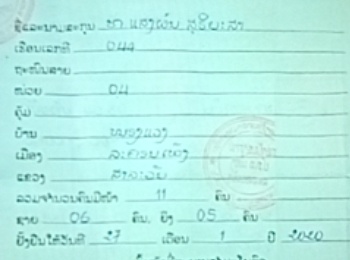 ຊື່ແລະນາມສະກຸນ ທ້າວ ແສງເພັດ ສຸລິຍະສາ
ເຮືອນເລກທີ 044
ຖະໜົນສາຍ
ໜ່ວຍ 04
ຄຸ້ມ
ບ້ານ ໜອງແວງ
ເມືອງ ລະຄອນເພັງ
ແຂວງ ສາລະວັນ
ລວມຈຳນວນຄົນມີໜ້າ 11 ຄົນ
ຊາຍ 06 ຄົນ, ຍິງ 05 ຄົນ
ຢັ້ງຢືນໃຫ້ວັນທີ 27 ເດືອນ 1 ປີ 2020